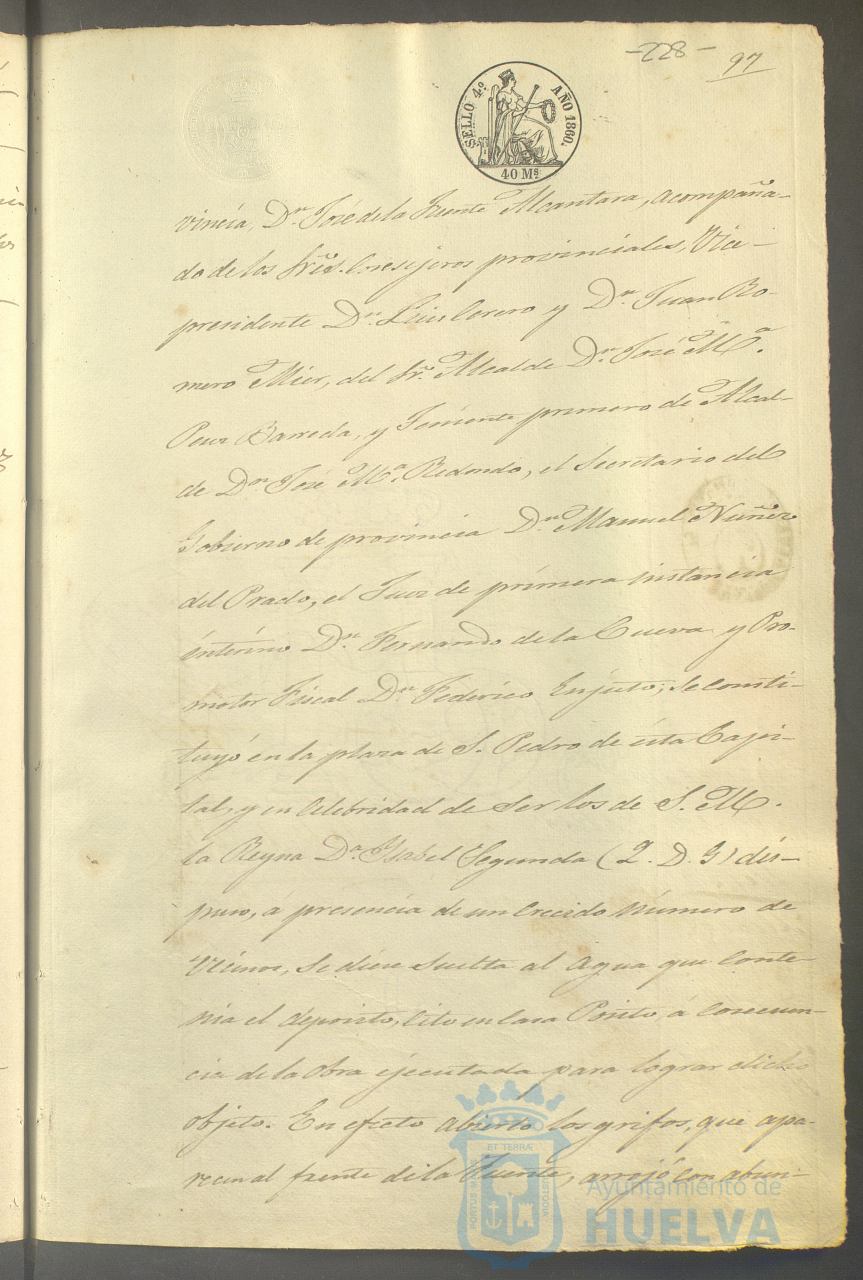 -228-
97
SELLO 4º AÑO 1860.
40 Mˢ
vincia, Dⁿ José de la Fuente Alcantara, acompaña-
do de los Srẽs. Consejeros provinciales, Vice-
presidente Dⁿ Luis Cerero y Dⁿ Juan Ro-
mero Mier, del Sr. Alcalde Dⁿ José Mª.
Perez Barreda, y Teniente primero de Alcal-
de Dⁿ José Mª. Redondo, el Secretario del
Gobierno de provincia Dⁿ Manuel Nuñez
del Prado, el Juez de primera instancia
interino Dⁿ Fernando de la Cueva y Pro-
motor Fiscal Dⁿ Federico Enjuto, se consti-
tuyó en la plaza de S. Pedro de ésta Capi-
tal, y en celebridad de ser los de S. M.
la Reyna Dª. Ysabel Segunda (Q. D. G) dis-
puso, a presencia de un crecido número de
vecinos, se diese suelta al agua que conte-
nia el deposito, cito en Casa Posito, á consecuen-
cia de la obra ejecutada para lograr dicho
objeto. En efecto abierto los grifos, que apa-
recen al frente de la Fuente, arrojó con abun-
PORTUS MARIS ET TERRAE CUSTODIA
Ayuntamiento de
HUELVA